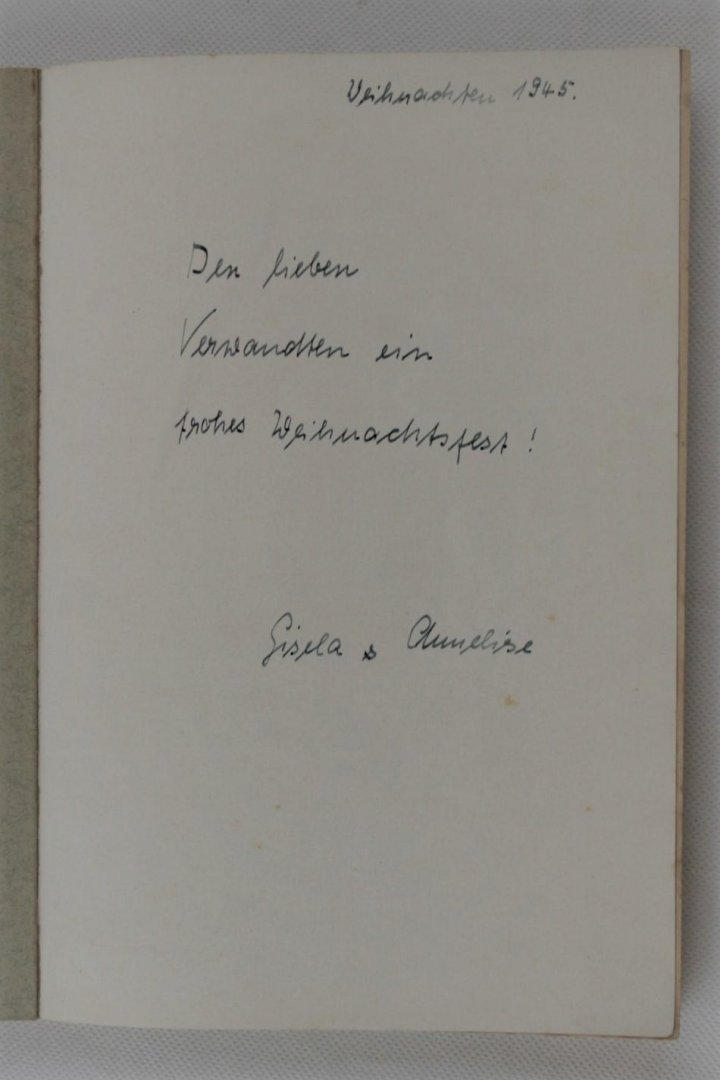 Weihnachten 1945.
Den lieben
Verwandten ein
frohes Weihnachtsfest!
Gisela & Annelise